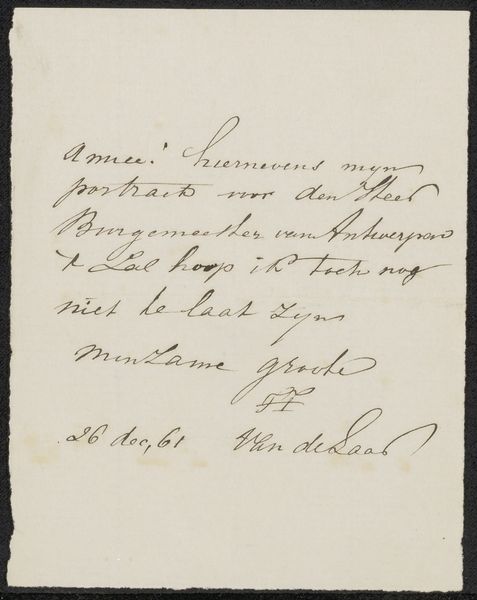 Amice! hiernevens myn
portrait voor den Heer
Burgemeester van Antwerpen
't Zal hoop ik toch nog
niet te laat zyn
minzame groete
26 dec, 61 Van de Laar